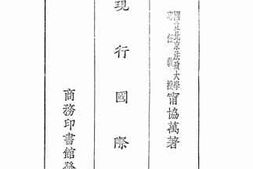 國立北京法政大學
專任教授
甯協萬著
現行國際
商務印書館發